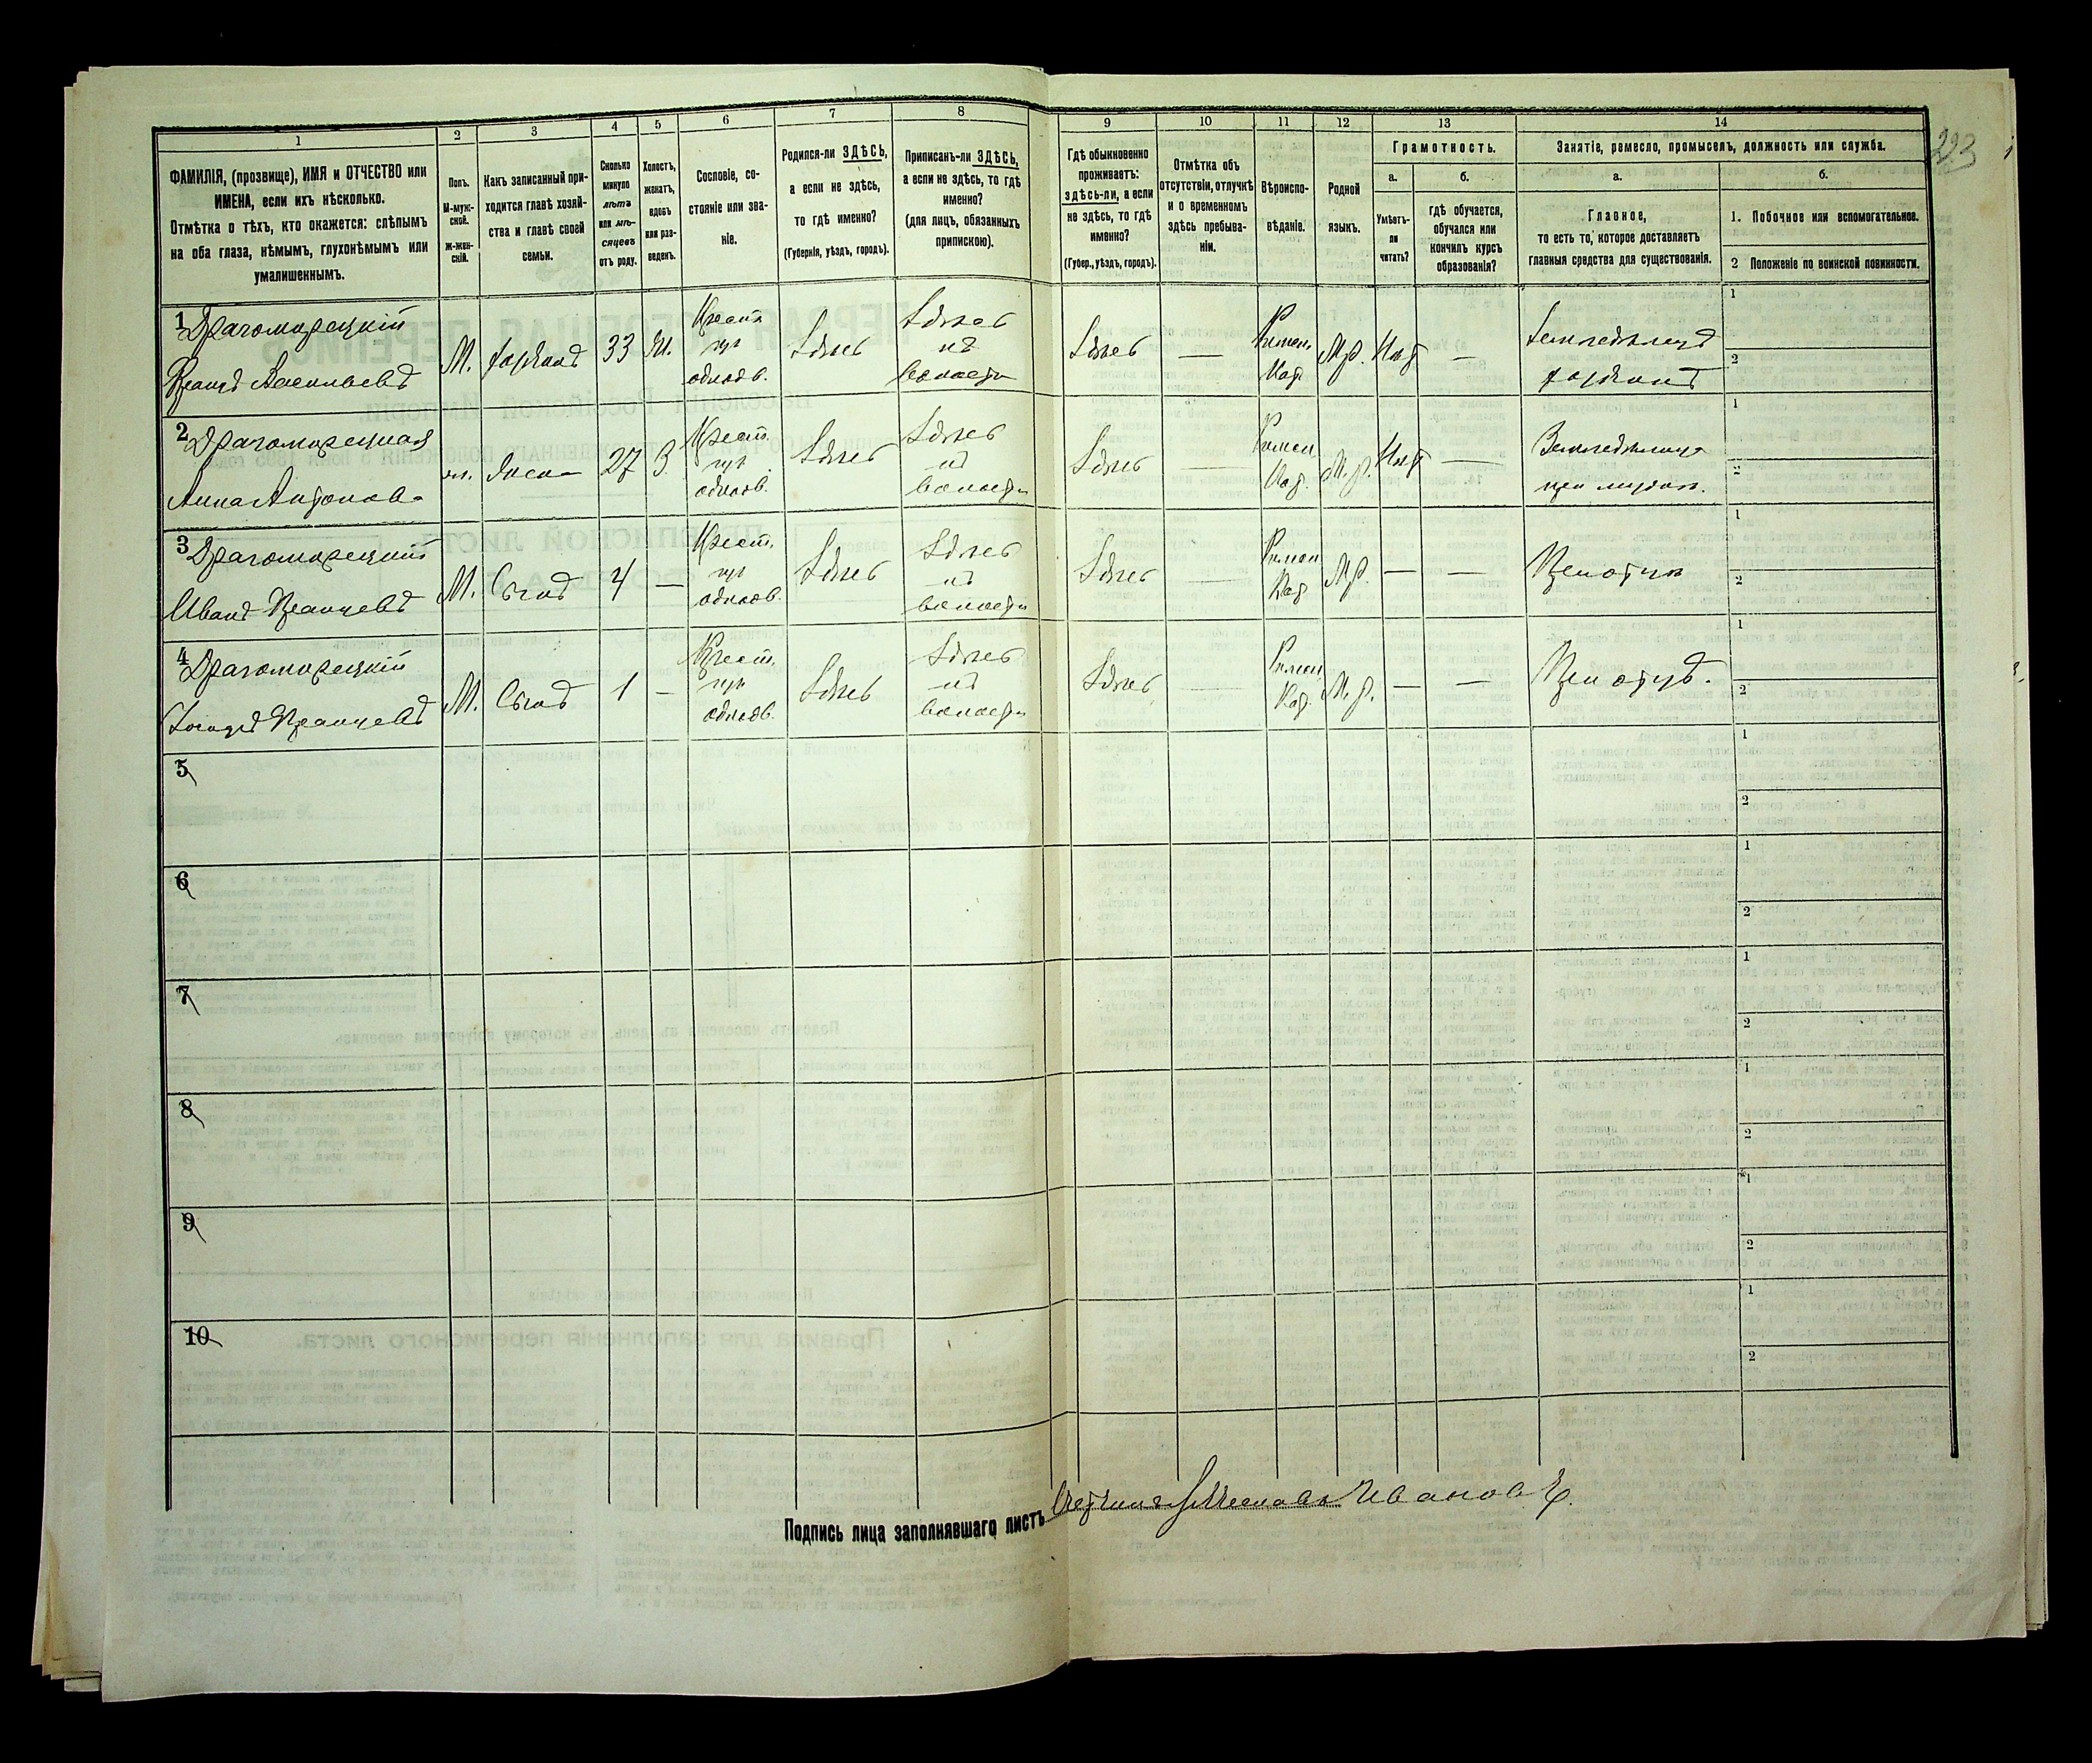 1 2 3 4 5 6 7 8 9 10 11 12 13 14
ФАМИЛІЯ, (прозвище), ИМЯ и ОТЧЕСТВО или
ИМЕНА, если ихъ нѣсколько.
Отмѣтка о тѣхъ, кто окажется: слѣпымъ
на оба глаза, нѣмымъ, глухонѣмымъ или
умалишеннымъ.
Полъ.
М-муж-
ской.
Ж-жен-
скій.
Какъ записанный при-
ходится главѣ хозяй-
ства и главѣ своей
семьи.
Сколько
минуло
лѣтъ
или мѣ-
сяцевъ
отъ роду.
Холостъ,
женатъ,
вдовъ
или раз-
веденъ.
Сословіе, со-
стояніе или зва-
ніе.
Родился-ли ЗДѢСЬ,
а если не здѣсь,
то гдѣ именно?
(Губернія, уѣздъ, городъ).
Приписанъ-ли ЗДѢСЬ,
а если не здѣсь, то гдѣ
именно?
(для лицъ, обязанныхъ
припискою).
Гдѣ обыкновенно
проживаетъ:
здѣсь-ли, а если
не здѣсь, то гдѣ
именно?
(Губер., уѣздъ, городъ).
Отмѣтка объ
отсутствіи, отлучкѣ
и о временномъ
здѣсь пребыва-
ніи.
Вѣроиспо-
вѣданіе.
Родной
языкъ.
Грамотность.
а.
Умѣетъ-
ли
читать?
б.
гдѣ обучается,
обучался или
кончилъ курсъ
образованія?
Занятіе, ремесло, промыселъ, должность или служба.
а.
Главное,
то есть то, которое доставляетъ
главныя средства для существованія.
б.
1. Побочное или вспомогательное.
2 Положеніе по воинской повинности.
223
1 Драгоморецкій
Францъ Васильевъ
М.
хозяинъ
33
Ж.
Крест.
одподв.
Здѣсь
Здѣсь
въ
волости
Здѣсь
—
Римск.
Кат.
Мр.
Нѣт
—
Земледѣлецъ
хозяинъ
1
2
2 Драгоморецкая
Анна Антонова
ж.
Жена
27
З.
Крест.
Здѣсь
Здѣсь
въ
волости
Здѣсь
—
Римск.
Кат.
М.р.
Нѣт
—
Земледѣлица
при мужѣ.
1
2
3 Драгоморецкій
Иванъ Францевъ
М.
Сынъ
4
—
Крест.
Здѣсь
Здѣсь
въ
волости
Здѣсь
—
Римск.
Кат.
Мр.
—
—
При отцѣ
1
2
4 Драгоморецкій
Іосифъ Францевъ
М.
Сынъ
1
—
Крест.
Здѣсь
Здѣсь
въ
волости
Здѣсь
—
Римск.
Кат.
М.р.
—
—
При отцѣ.
1
2
5
1
2
6
1
2
7
1
2
8
1
2
9
1
2
10
1
2
Подпись лица заполнявшаго листъ Ивановъ